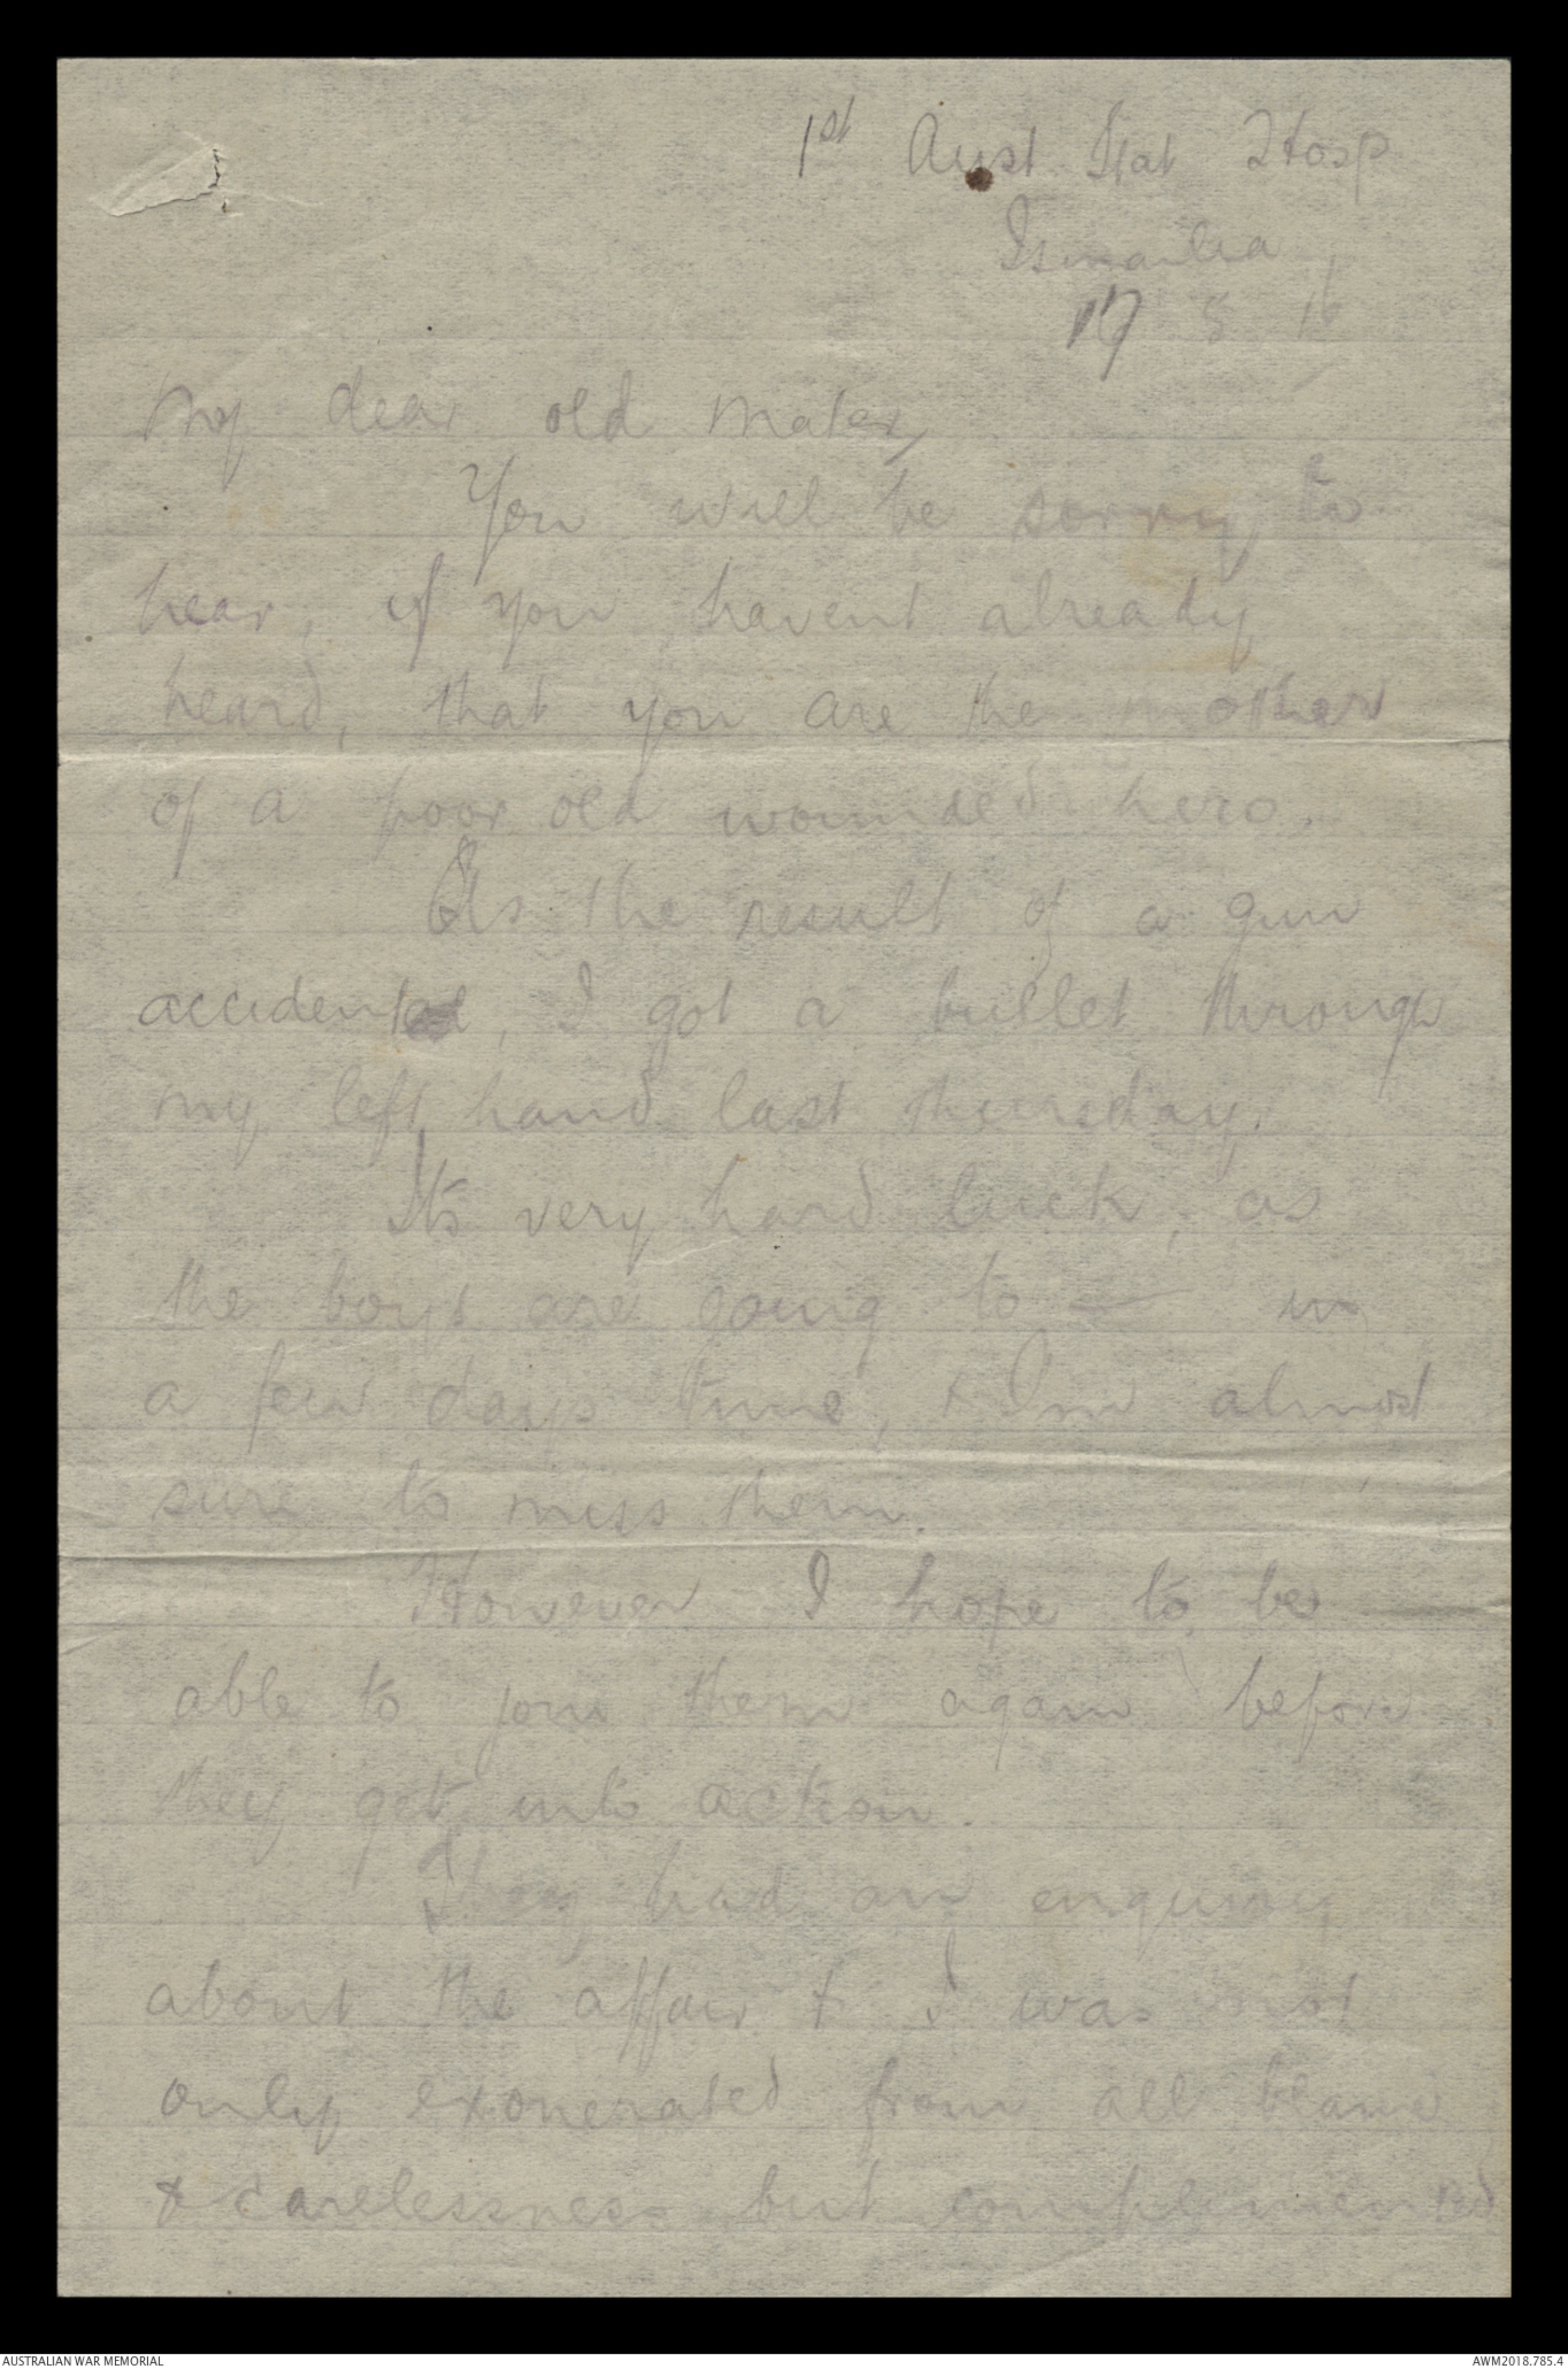 1st Aust Stat Hosp
Ismailia
17 5 16
My dear old Mater,
You will be sorry to
hear, if you havent already
heard, that you are the mother
of a poor old wounded hero.
As the result of a gun
accident, I got a bullet through
my left hand last thursday.
Its very hard luck, as
the boys are going to — in
a few days time, & Im almost
sure to miss them.
However I hope to be
able to join them again before
they get into action.
They had an enquiry
about the affair & I was not
only exonerated from all blame
& carelessness but complimented
AUSTRALIAN WAR MEMORIAL
AWM2018.785.4